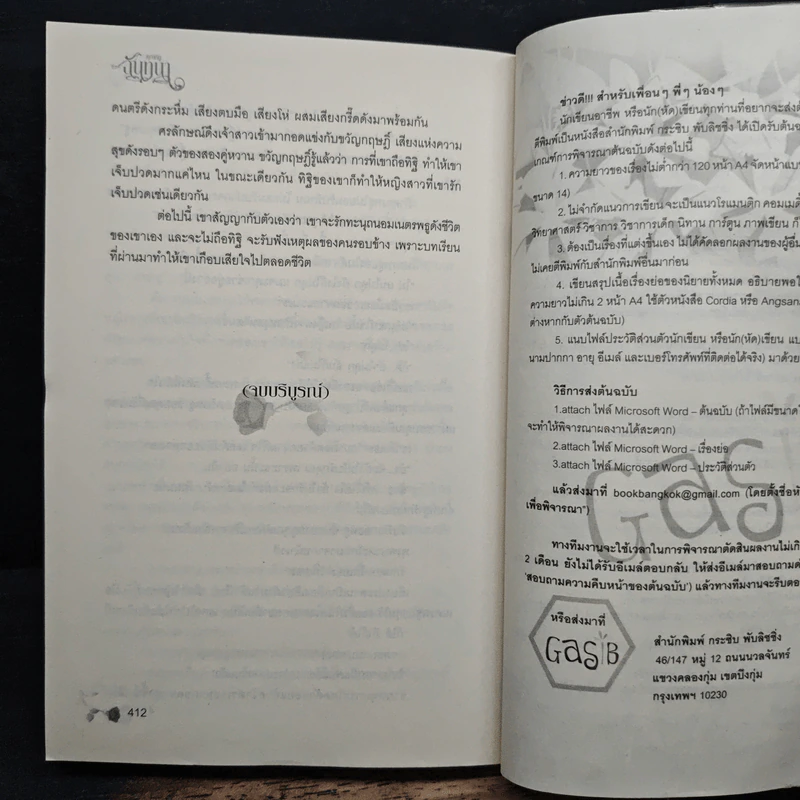 ดนตรีดังกระหึ่ม เสียงตบมือ เสียงโห่ ผสมเสียงกรี๊ดดังมาพร้อมกัน
ศรลักษณ์ดึงเจ้าสาวเข้ามากอดแข่งกับขวัญกฤษฎิ์ เสียงแห่งความ
สุขดังรอบๆ ตัวของสองคู่หวาน ขวัญกฤษฎิ์รู้แล้วว่า การที่เขาถือทิฐิ ทำให้เขา
เจ็บปวดมากแค่ไหน ในขณะเดียวกัน ทิฐิของเขาก็ทำให้หญิงสาวที่เขารัก
เจ็บปวดเช่นเดียวกัน
ต่อไปนี้ เขาสัญญากับตัวเองว่า เขาจะรักทะนุถนอมเนตรพธูดังชีวิต
ของเขาเอง และจะไม่ถือทิฐิ จะรับฟังเหตุผลของคนรอบข้าง เพราะบทเรียน
ที่ผ่านมาทำให้เขาเกือบเสียใจไปตลอดชีวิต
(จบบริบูรณ์)
412
ข่าวดี!!! สำหรับเพื่อนๆ พี่ๆ น้องๆ
นักเขียนอาชีพ หรือนัก(หัด)เขียนทุกท่านที่อยากจะส่งต้
ตีพิมพ์เป็นหนังสือสำนักพิมพ์ กระซิบ พับลิชชิ่ง ได้เปิดรับต้นฉ
เกณฑ์การพิจารณาต้นฉบับดังต่อไปนี้
1. ความยาวของเรื่องไม่ต่ำกว่า 120 หน้า A4 จัดหน้าแบบ
ขนาด 14)
2. ไม่จำกัดแนวการเขียน จะเป็นแนวโรแมนติก คอมเมดี
วิทยาศาสตร์ วิชาการ วิชาการเด็ก นิทาน การ์ตูน ภาพเขียน ก็
3. ต้องเป็นเรื่องที่แต่งขึ้นเอง ไม่ได้คัดลอกผลงานของผู้อื่น
ไม่เคยตีพิมพ์กับสำนักพิมพ์อื่นมาก่อน
4. เขียนสรุปเนื้อเรื่องย่อของนิยายทั้งหมด อธิบายพอใ
ความยาวไม่เกิน 2 หน้า A4 ใช้ตัวหนังสือ Cordia หรือ Angsan
ต่างหากกับตัวต้นฉบับ)
5. แนบไฟล์ประวัติส่วนตัวนักเขียน หรือนัก(หัด)เขียน แบ
นามปากกา อายุ อีเมล์ และเบอร์โทรศัพท์ที่ติดต่อได้จริง) มาด้วย
วิธีการส่งต้นฉบับ
1.attach ไฟล์ Microsoft Word – ต้นฉบับ (ถ้าไฟล์มีขนาดใ
จะทำให้พิจารณาผลงานได้สะดวก)
2.attach ไฟล์ Microsoft Word – เรื่องย่อ
3.attach ไฟล์ Microsoft Word – ประวัติส่วนตัว
แล้วส่งมาที่ bookbangkok@gmail.com (โดยตั้งชื่อหั
เพื่อพิจารณา")
ทางทีมงานจะใช้เวลาในการพิจารณาตัดสินผลงานไม่เกิ
2 เดือน ยังไม่ได้รับอีเมล์ตอบกลับ ให้ส่งอีเมล์มาสอบถามด้
'สอบถามความคืบหน้าของต้นฉบับ') แล้วทางทีมงานจะรีบตอ
หรือส่งมาที่
GasiB
สำนักพิมพ์ กระซิบ พับลิชชิ่ง
46/147 หมู่ 12 ถนนนวลจันทร์
แขวงคลองกุ่ม เขตบึงกุ่ม
กรุงเทพฯ 10230